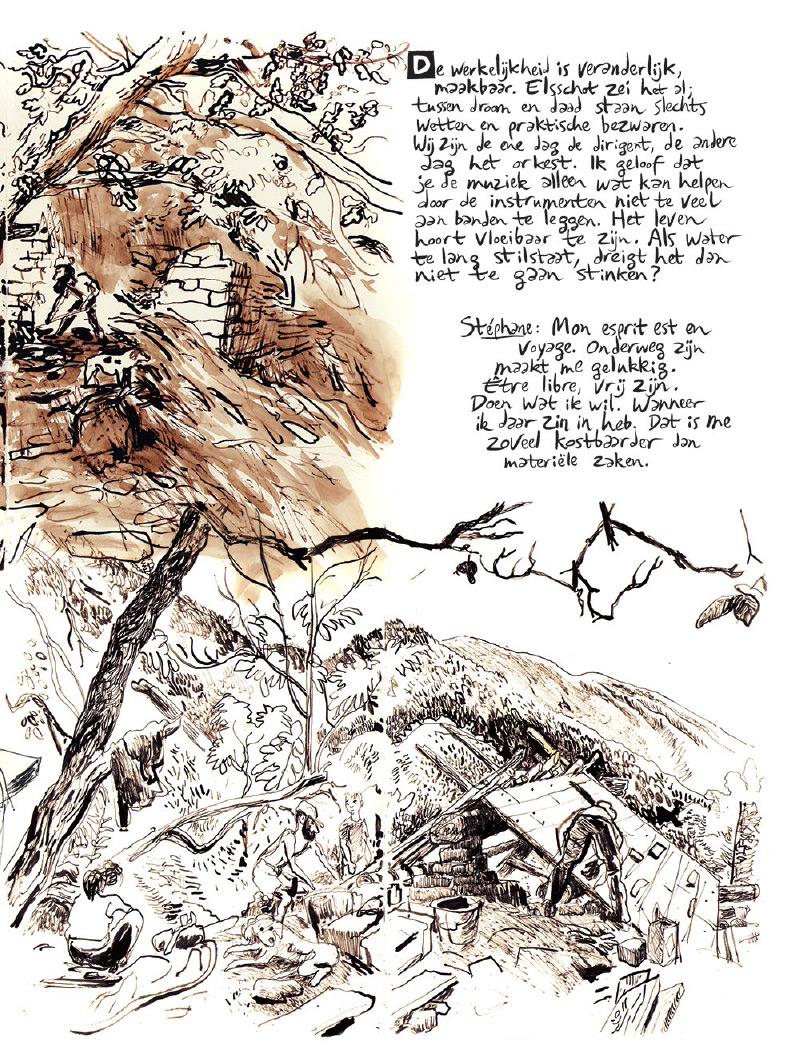 De werkelijkheid is veranderlijk,
maakbaar. Elsschot zei het al;
tussen droom en daad staan slechts
wetten en praktische bezwaren.
Wij zijn de ene dag de dirigent, de andere
dag het orkest. Ik geloof dat
je de muziek alleen wat kan helpen
door de instrumenten niet te veel
aan banden te leggen. Het leven
hoort vloeibaar te zijn. Als water
te lang stilstaat, dreigt het dan
niet te gaan stinken?
Stéphane: Mon esprit est en
voyage. Onderweg zijn
maakt me gelukkig.
Être libre, vrij zijn.
Doen wat ik wil. Wanneer
ik daar zin in heb. Dat is me
zoveel kostbaarder dan
materiële zaken.